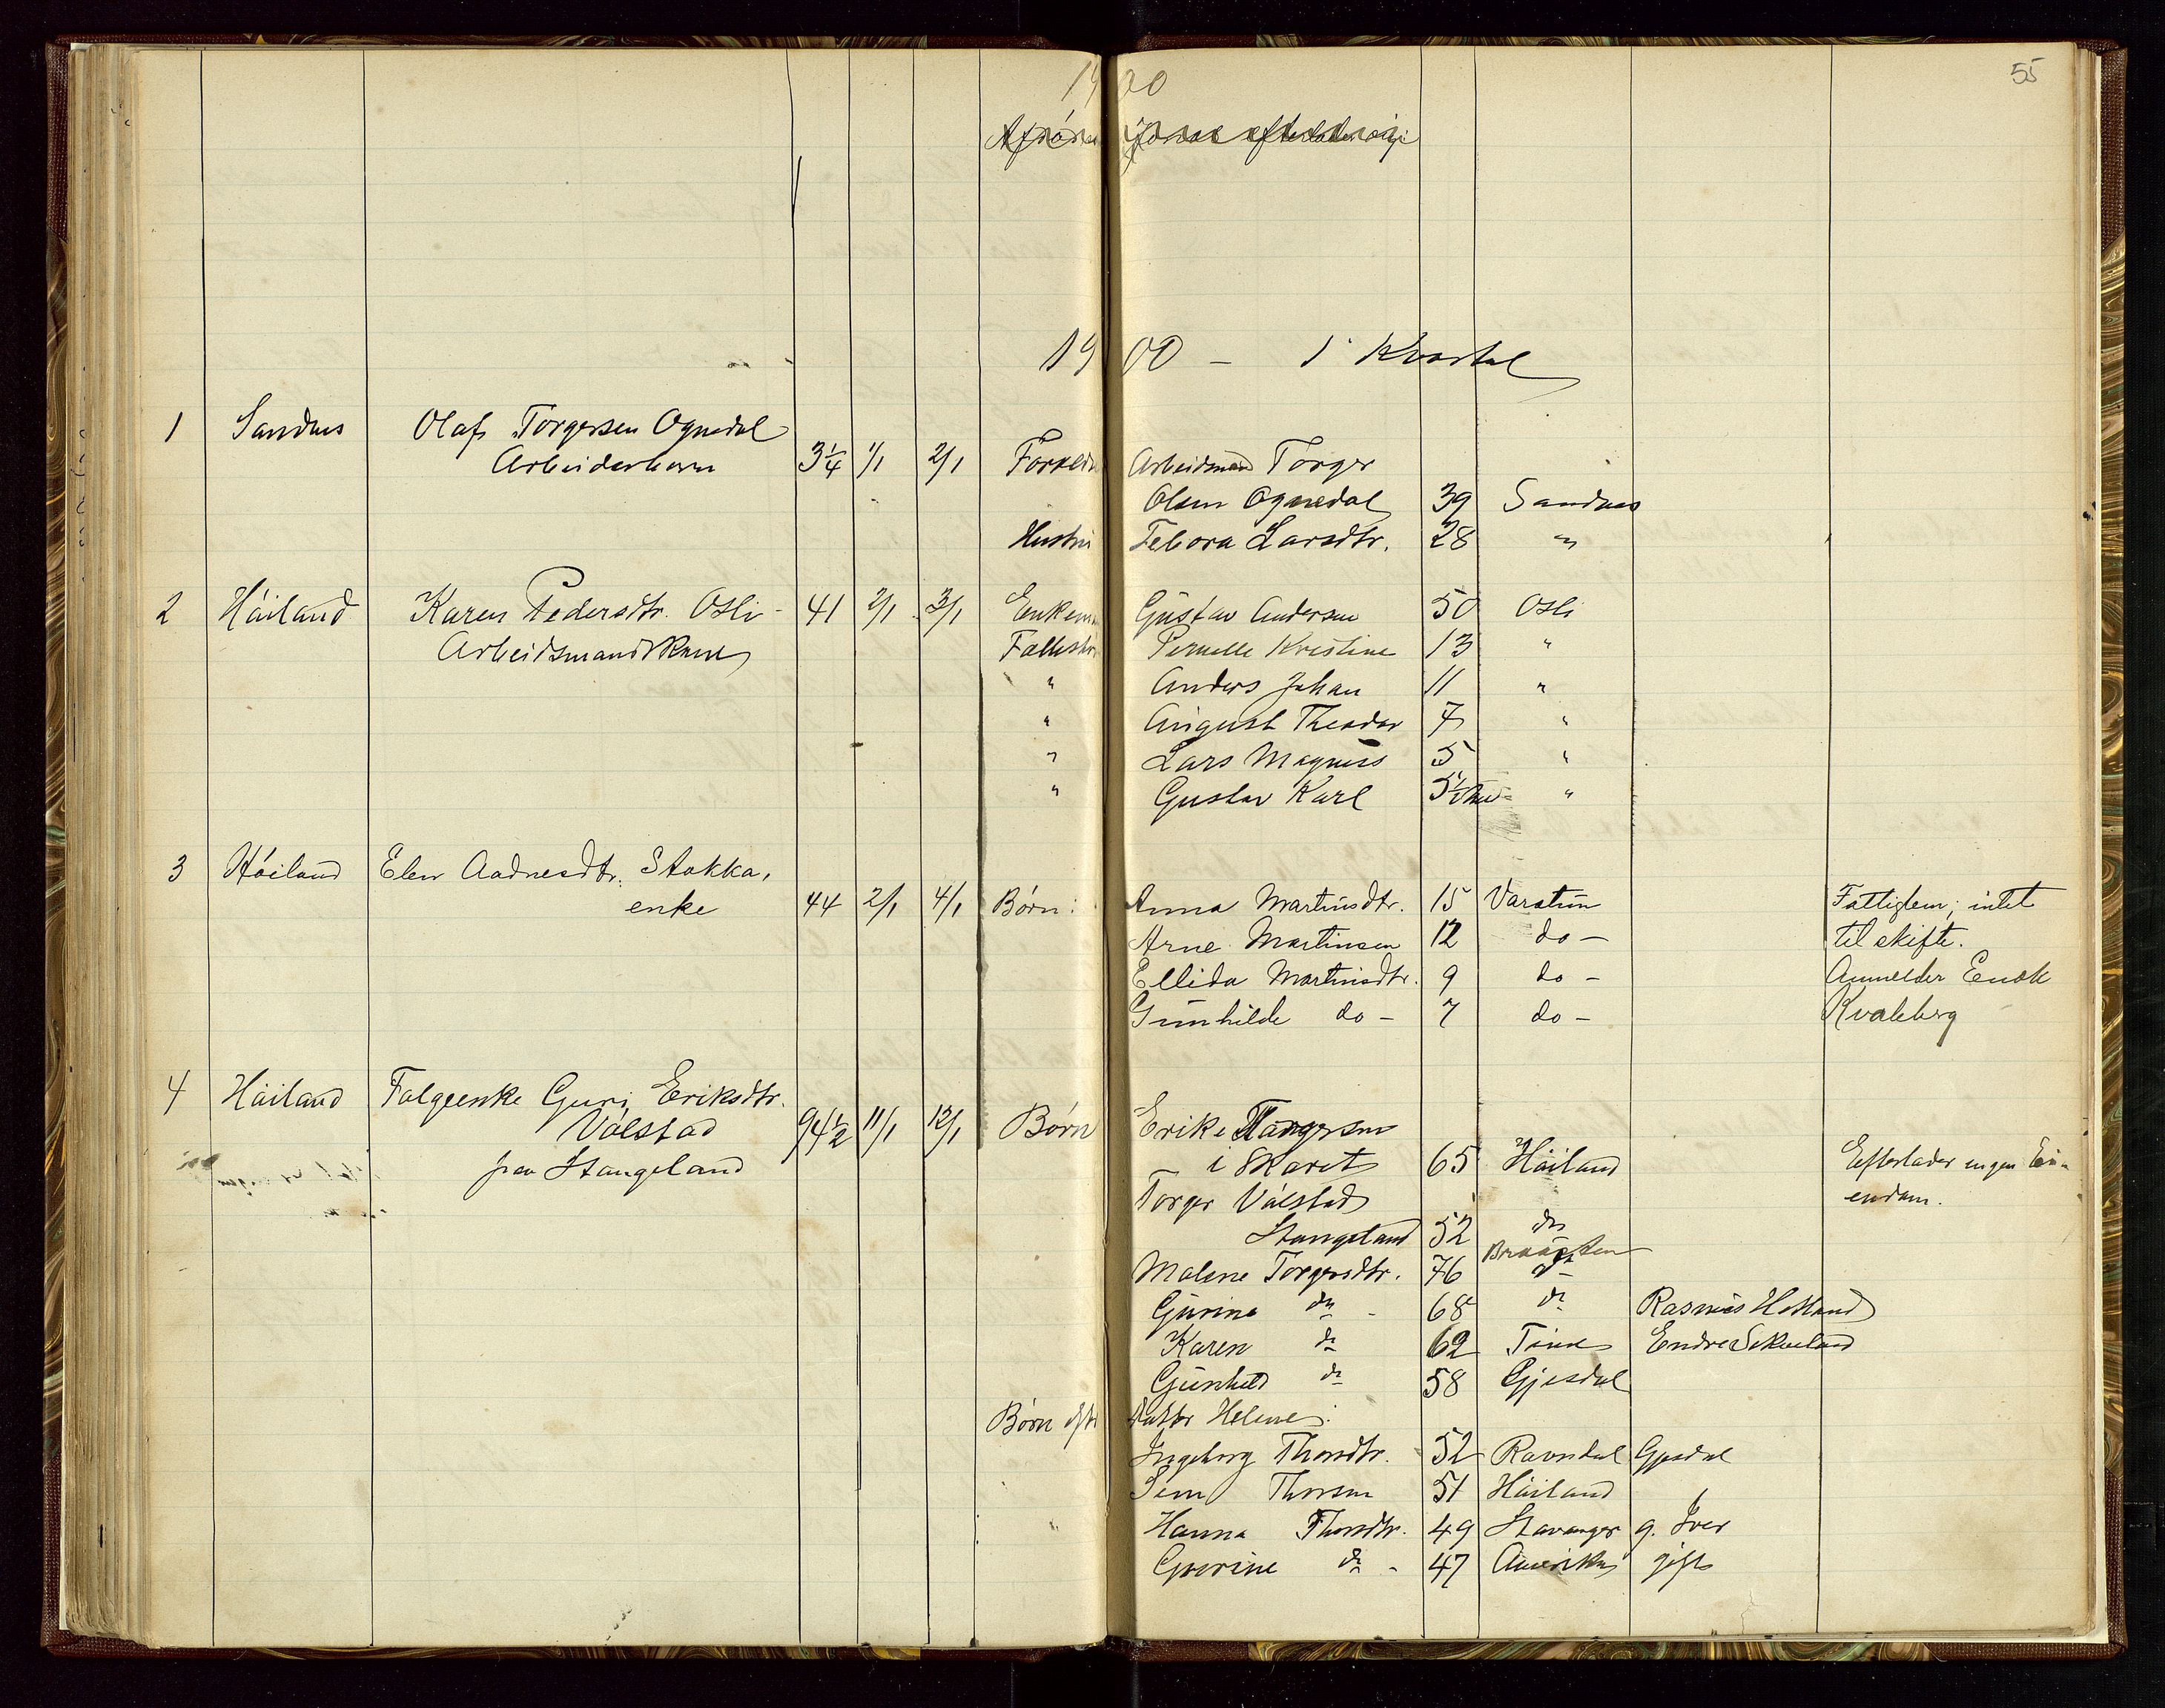 1900
55
1900 – 1 Kvartal
1 Sandnes Olaf Torgersen Ognedal
Arbeiderbarn 3 1/4 1/1 2/1 Arbeidsmand Torger
Olsen Ognedal 39 Sandnes
Hustru Tebora Larsdtr. 28 "
2 Høiland Karen Pedersdtr. Osli 41 2/1 3/1 Enkem Gustav Andersen 50 Osli
Arbeidsmandskone Pernelle Kristine 13 "
" Anders Johan 11 "
" August Theodor 7 "
" Lars Magnus 5 "
" Gustav Karl "
3 Høiland Elen Aadnesdtr. Stokka,
enke 44 2/1 4/1 Børn: Anna Martinsdtr. 15 Varatun Fattiglem, intet
Arne Martinsen 12 do – til skifte.
Ellida Martinsdtr. 9 do – Anmelder Enok
Gunhilde do – 7 do – Kvaleberg
4 Høiland Guri Eriksdtr.
Vølstad 94 1/2 11/1 12/1 Børn Erik
fra Stangeland i Skaret 65 Høiland Efterlader ingen Ei-
Torger Vølstad endom.
Stangeland 52 do
Malene Torgersdtr. 76
Gurine do - 68 do Rasmus Hotland
Karen do 62 Time Endre
Gunhild do 58 Gjesdal
Børn efter datter Helene:
Ingeborg Thorsdtr. 52 Ravndal Gjesdal
Thorsen 51 Høiland
Hanna Thorsdtr. 49 Stavanger g. Iver
do - 47 Amerika gift